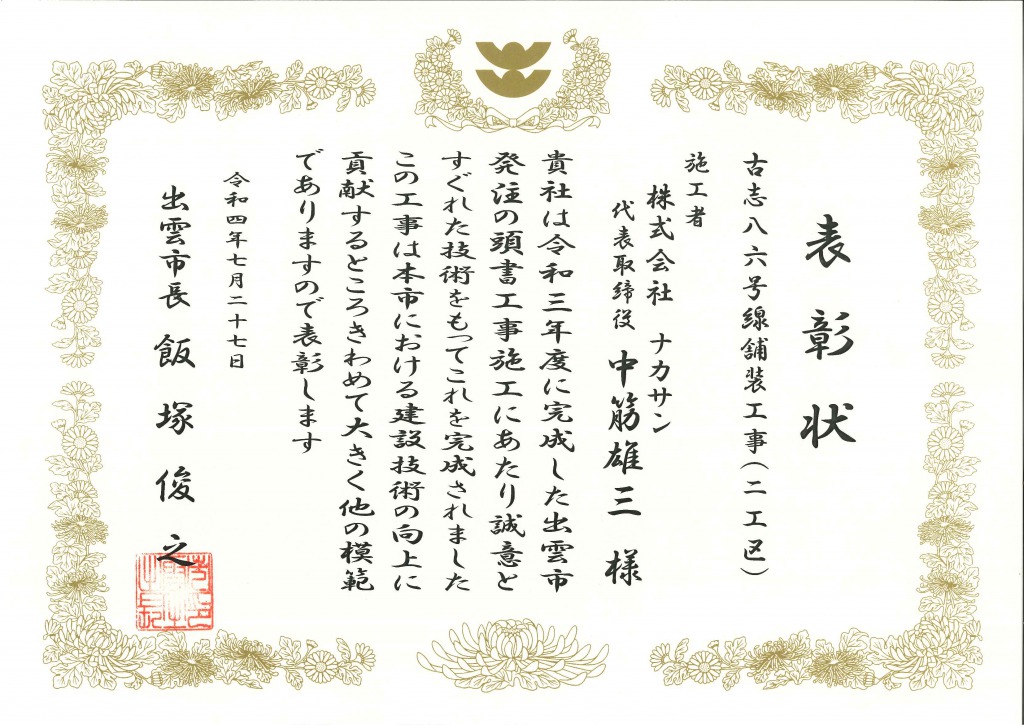 表彰状
古志八六号線舗装工事(二工区)
施工者
株式会社 ナカサン
代表取締役 中筋雄三 様
貴社は令和三年度に完成した出雲市
発注の頭書工事施工にあたり誠意と
すぐれた技術をもってこれを完成されました
この工事は本市における建設技術の向上に
貢献するところきわめて大きく他の模範
でありますので表彰します
令和四年七月二十七日
出雲市長 飯塚俊之